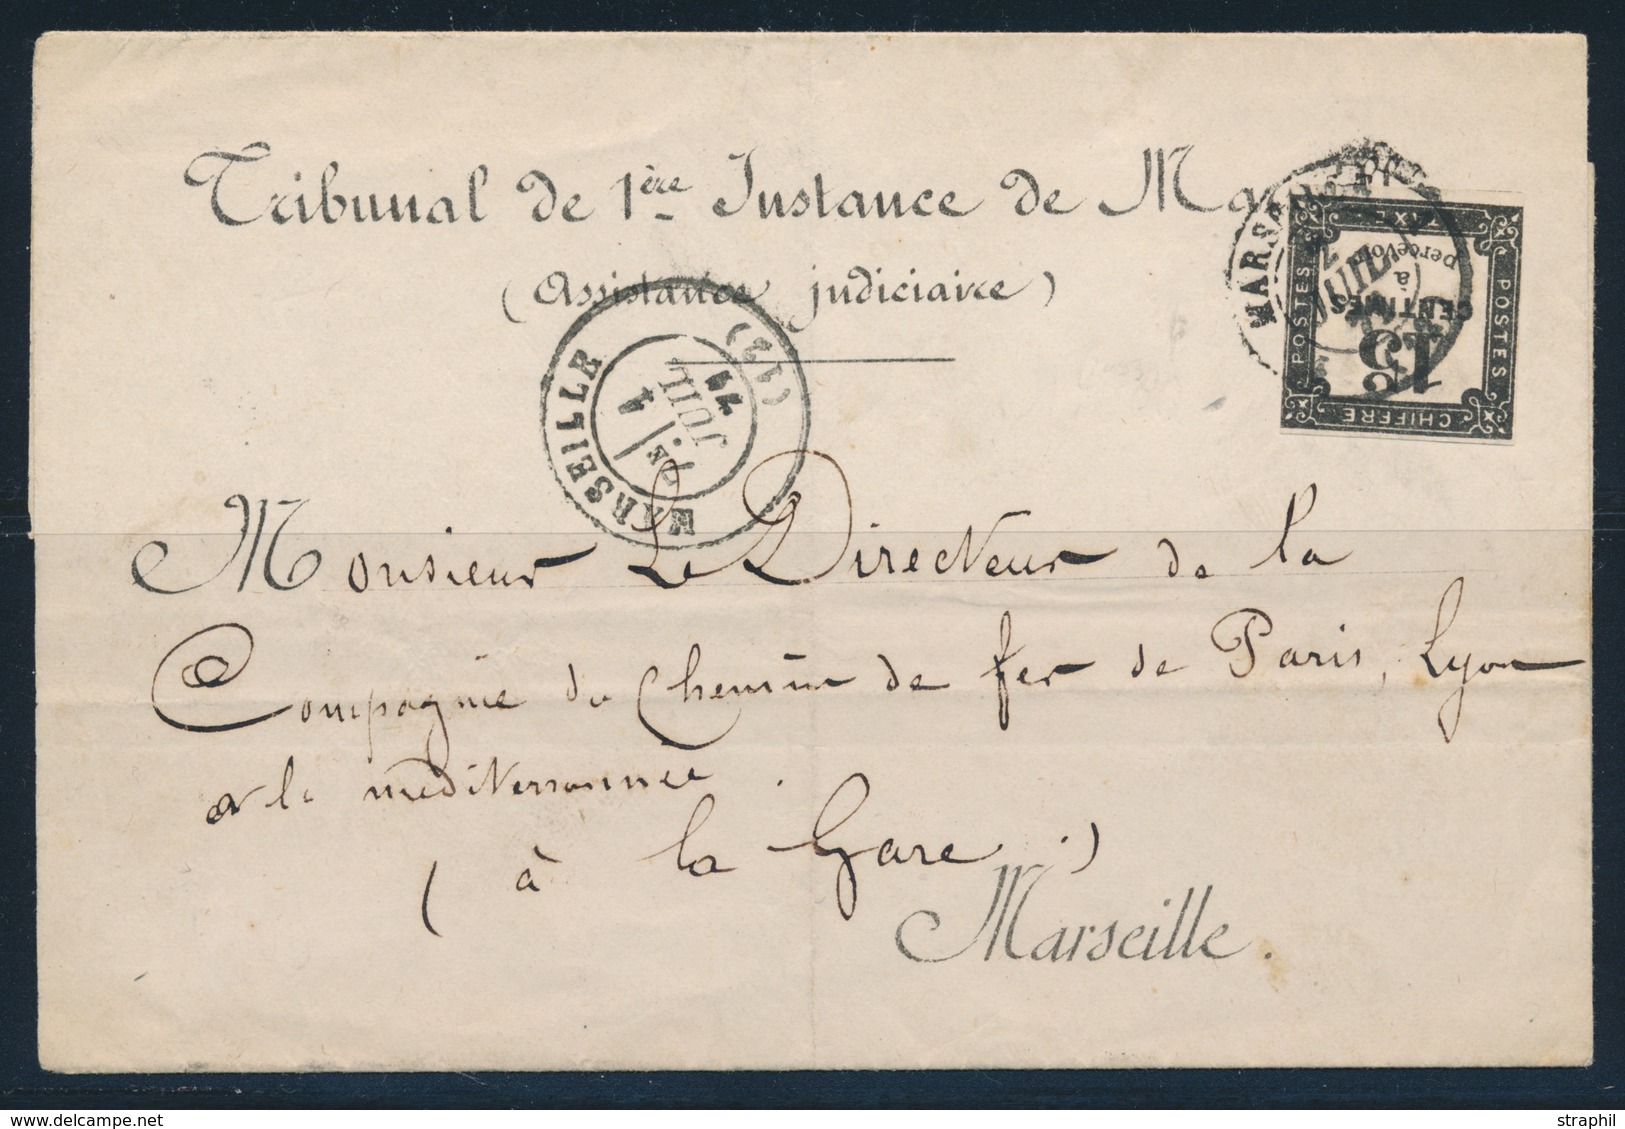 Tribunal de 1ère Instance de Ma
(Assistance judiciaire)
MARSEILLE
(12)
1
2E
JUIL
71
MARSE
2
JUIL
CHIFFRE
POSTES
TAXE
POSTES
15
CENTIMES
à
percevoir
Monsieur Le Directeur de la
Compagnie du Chemin de fer de Paris, Lyon
& la méditerrannée.
(à la Gare.)
Marseille.
delcampe.net
straphil